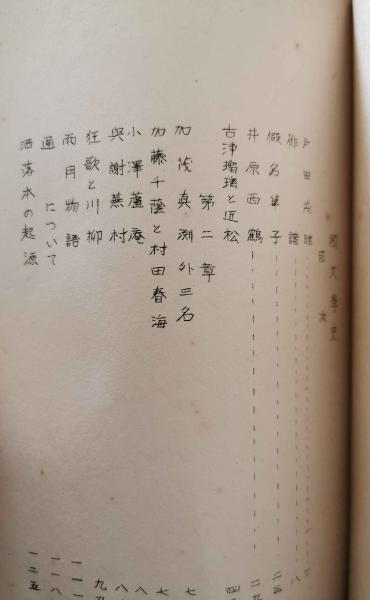 國文學史
目次
戸田茂睡 二
俳諧 八
假名草子 二三
井原西鶴 二九
古浄瑠璃と近松 四
第二章
加茂真渕外三名 七
加藤千蔭と村田春海 七
小澤蘆庵 八
與謝蕪村 八
狂歌と川柳 九九
雨月物語 一一一
通について 一一八
洒落本の起源 一二五